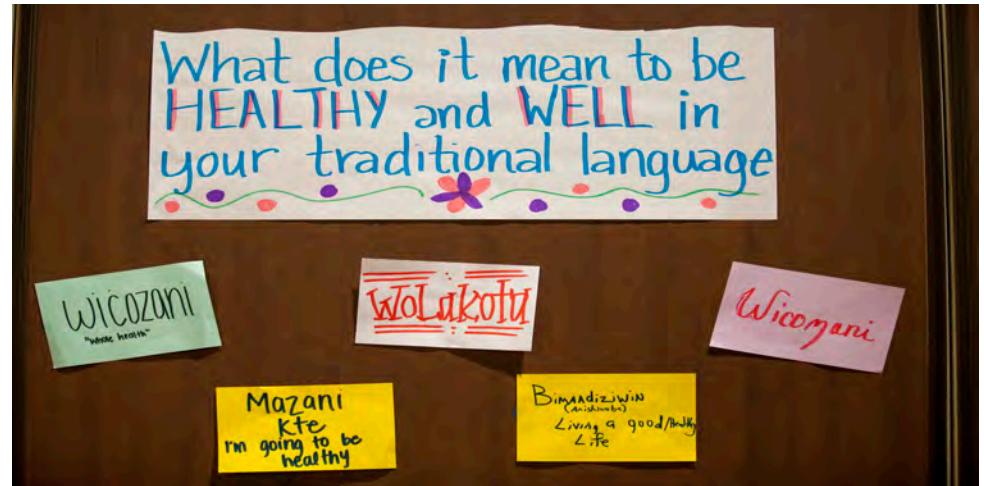 What does it mean to be
HEALTHY and WELL in
your traditional language
WICOZANI
"whole health"
WoLakotu
Wicozani
Mazani
Kte
I'm going to be
healthy
Bimaadiziwin
(Anishinabe)
Living a good/Healthy
Life